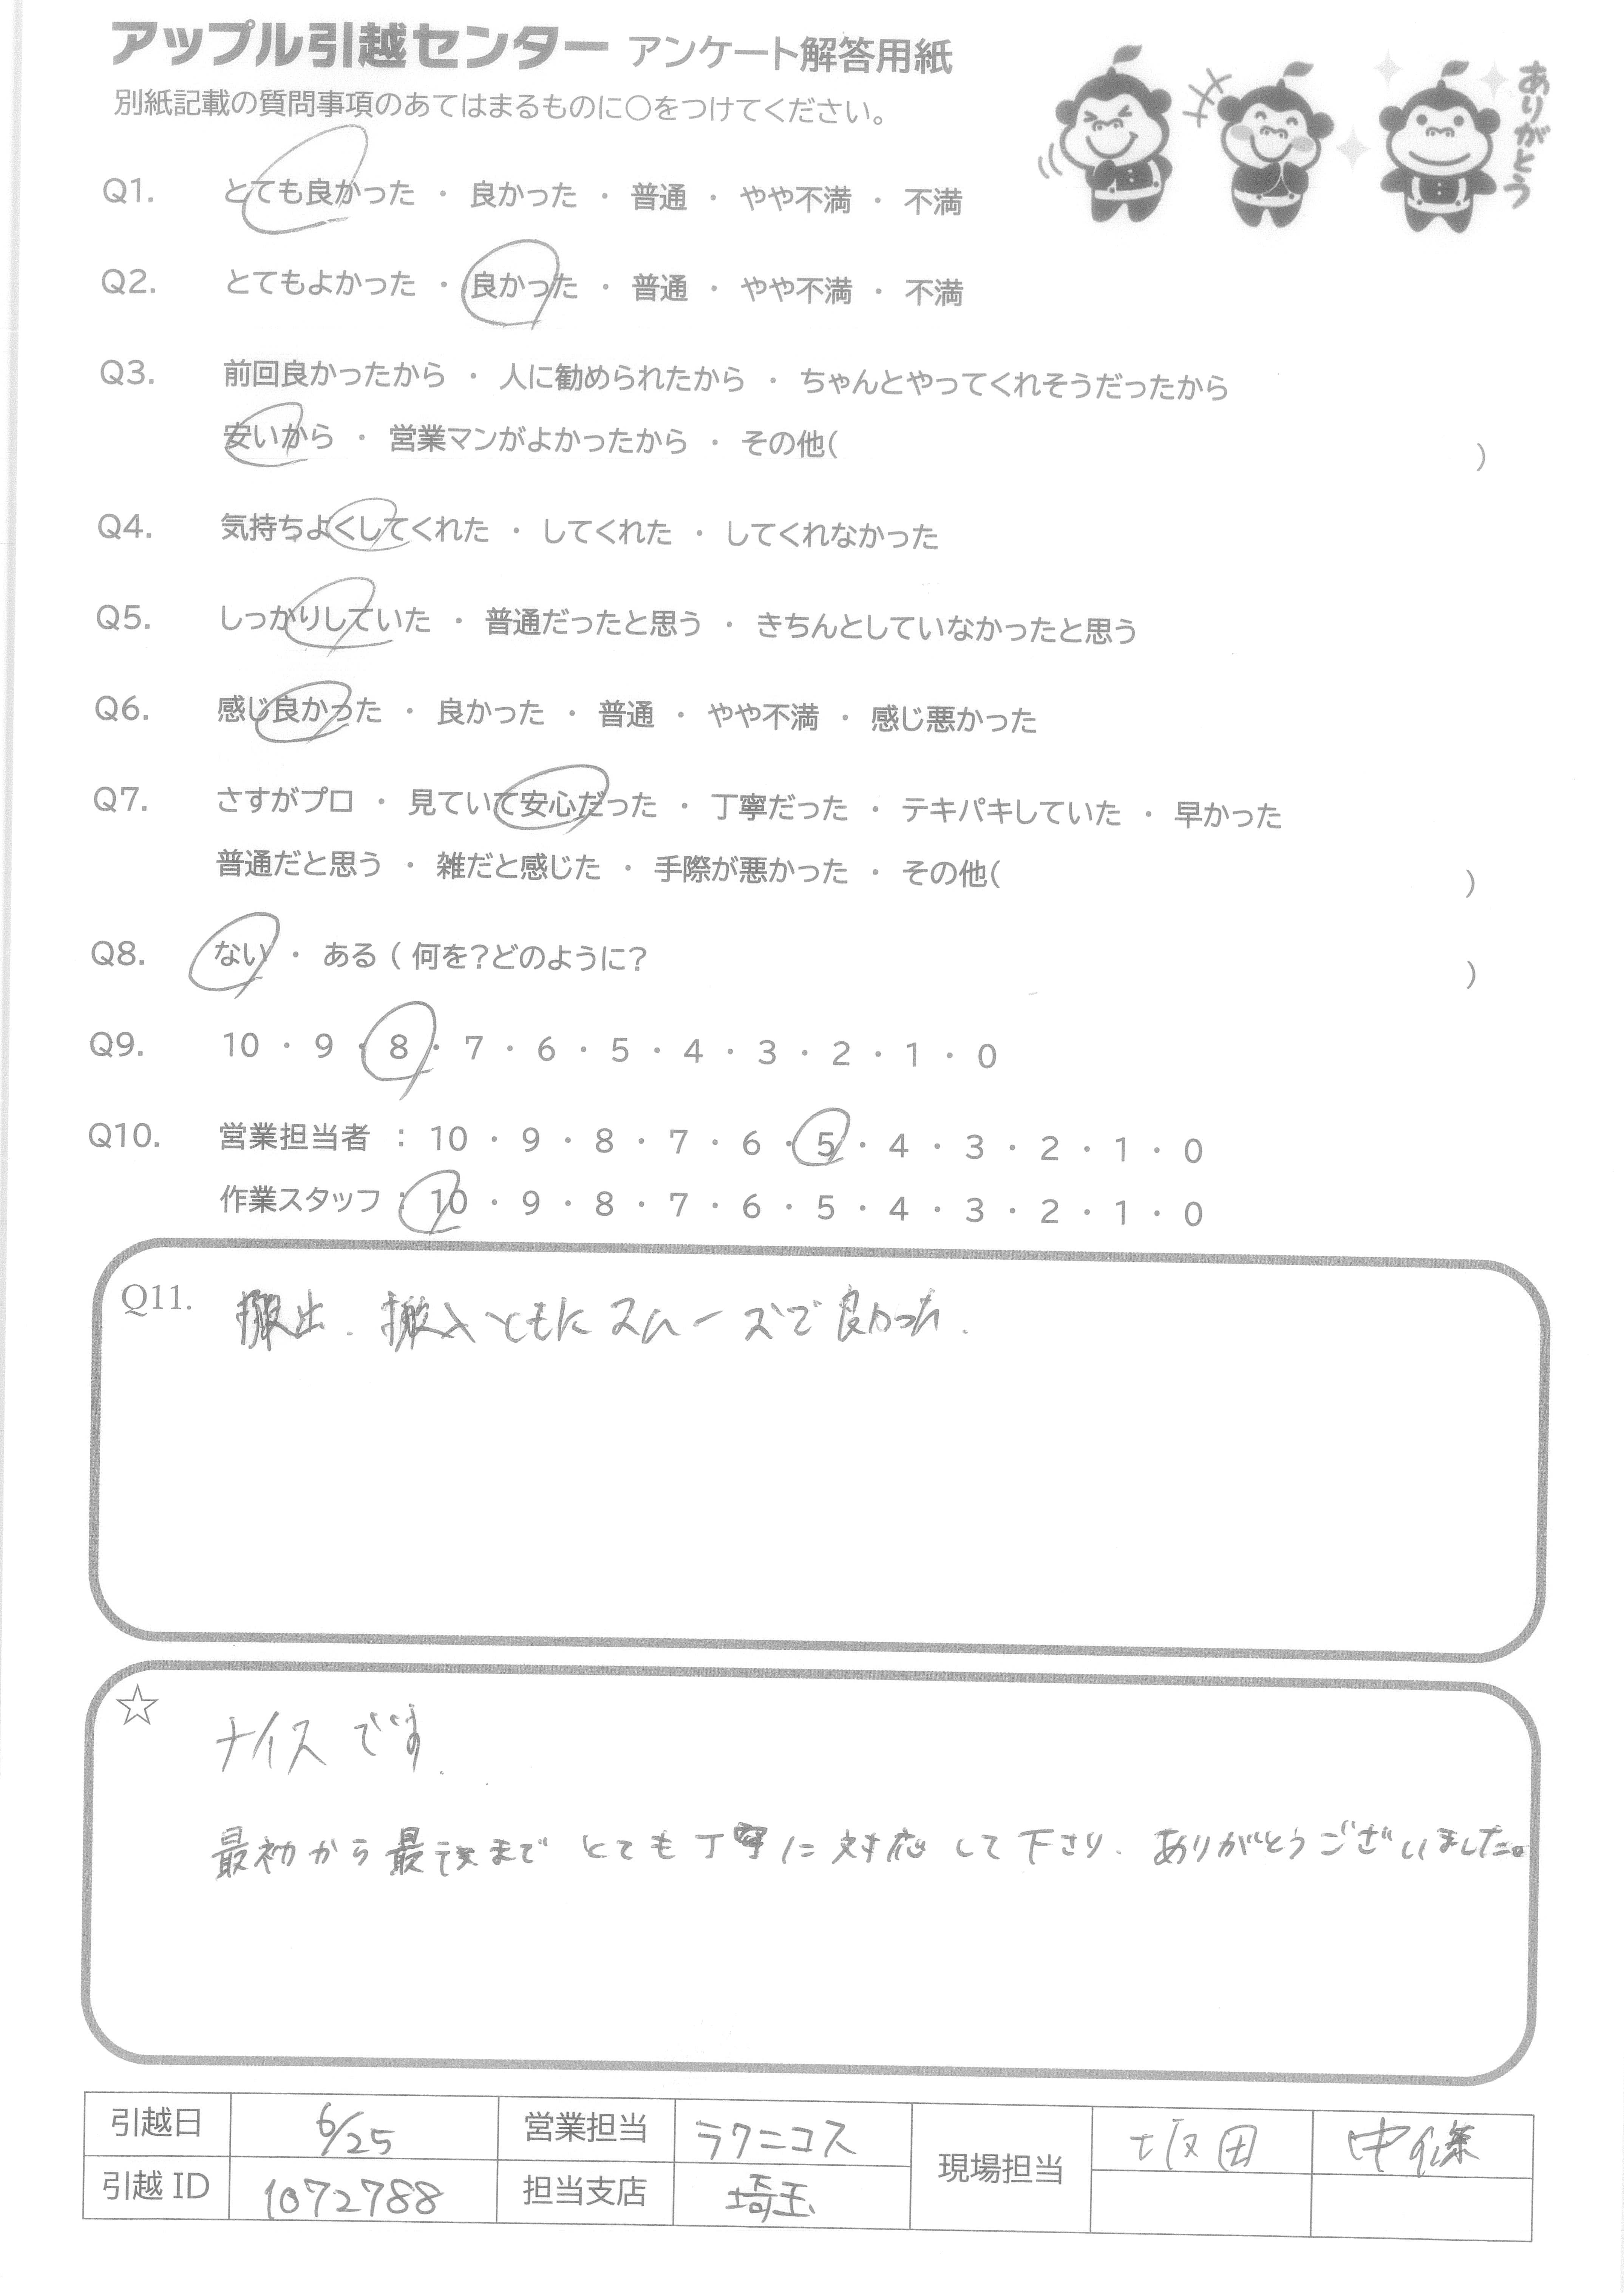 アップル引越センター アンケート解答用紙
ありがとう
別紙記載の質問事項のあてはまるものに○をつけてください。
Q1. とても良かった ・ 良かった ・ 普通 ・ やや不満 ・ 不満
Q2. とてもよかった ・ 良かった ・ 普通 ・ やや不満 ・ 不満
Q3. 前回良かったから ・ 人に勧められたから ・ ちゃんとやってくれそうだったから
安いから ・ 営業マンがよかったから ・ その他( )
Q4. 気持ちよくしてくれた ・ してくれた ・ してくれなかった
Q5. しっかりしていた ・ 普通だったと思う ・ きちんとしていなかったと思う
Q6. 感じ良かった ・ 良かった ・ 普通 ・ やや不満 ・ 感じ悪かった
Q7. さすがプロ ・ 見ていて安心だった ・ 丁寧だった ・ テキパキしていた ・ 早かった
普通だと思う ・ 雑だと感じた ・ 手際が悪かった ・ その他( )
Q8. ない ・ ある ( 何を?どのように? )
Q9. 10 ・ 9 ・ 8 ・ 7 ・ 6 ・ 5 ・ 4 ・ 3 ・ 2 ・ 1 ・ 0
Q10. 営業担当者 : 10 ・ 9 ・ 8 ・ 7 ・ 6 ・ 5 ・ 4 ・ 3 ・ 2 ・ 1 ・ 0
作業スタッフ : 10 ・ 9 ・ 8 ・ 7 ・ 6 ・ 5 ・ 4 ・ 3 ・ 2 ・ 1 ・ 0
Q11. 搬出、搬入ともにスムーズで良かった。
☆ ナイスです。
最初から最後まで とても丁寧に対応して下さり、ありがとうございました。
引越日 6/25 営業担当 ラクニコス 現場担当 坂田 中條
引越 ID 1072788 担当支店 埼玉